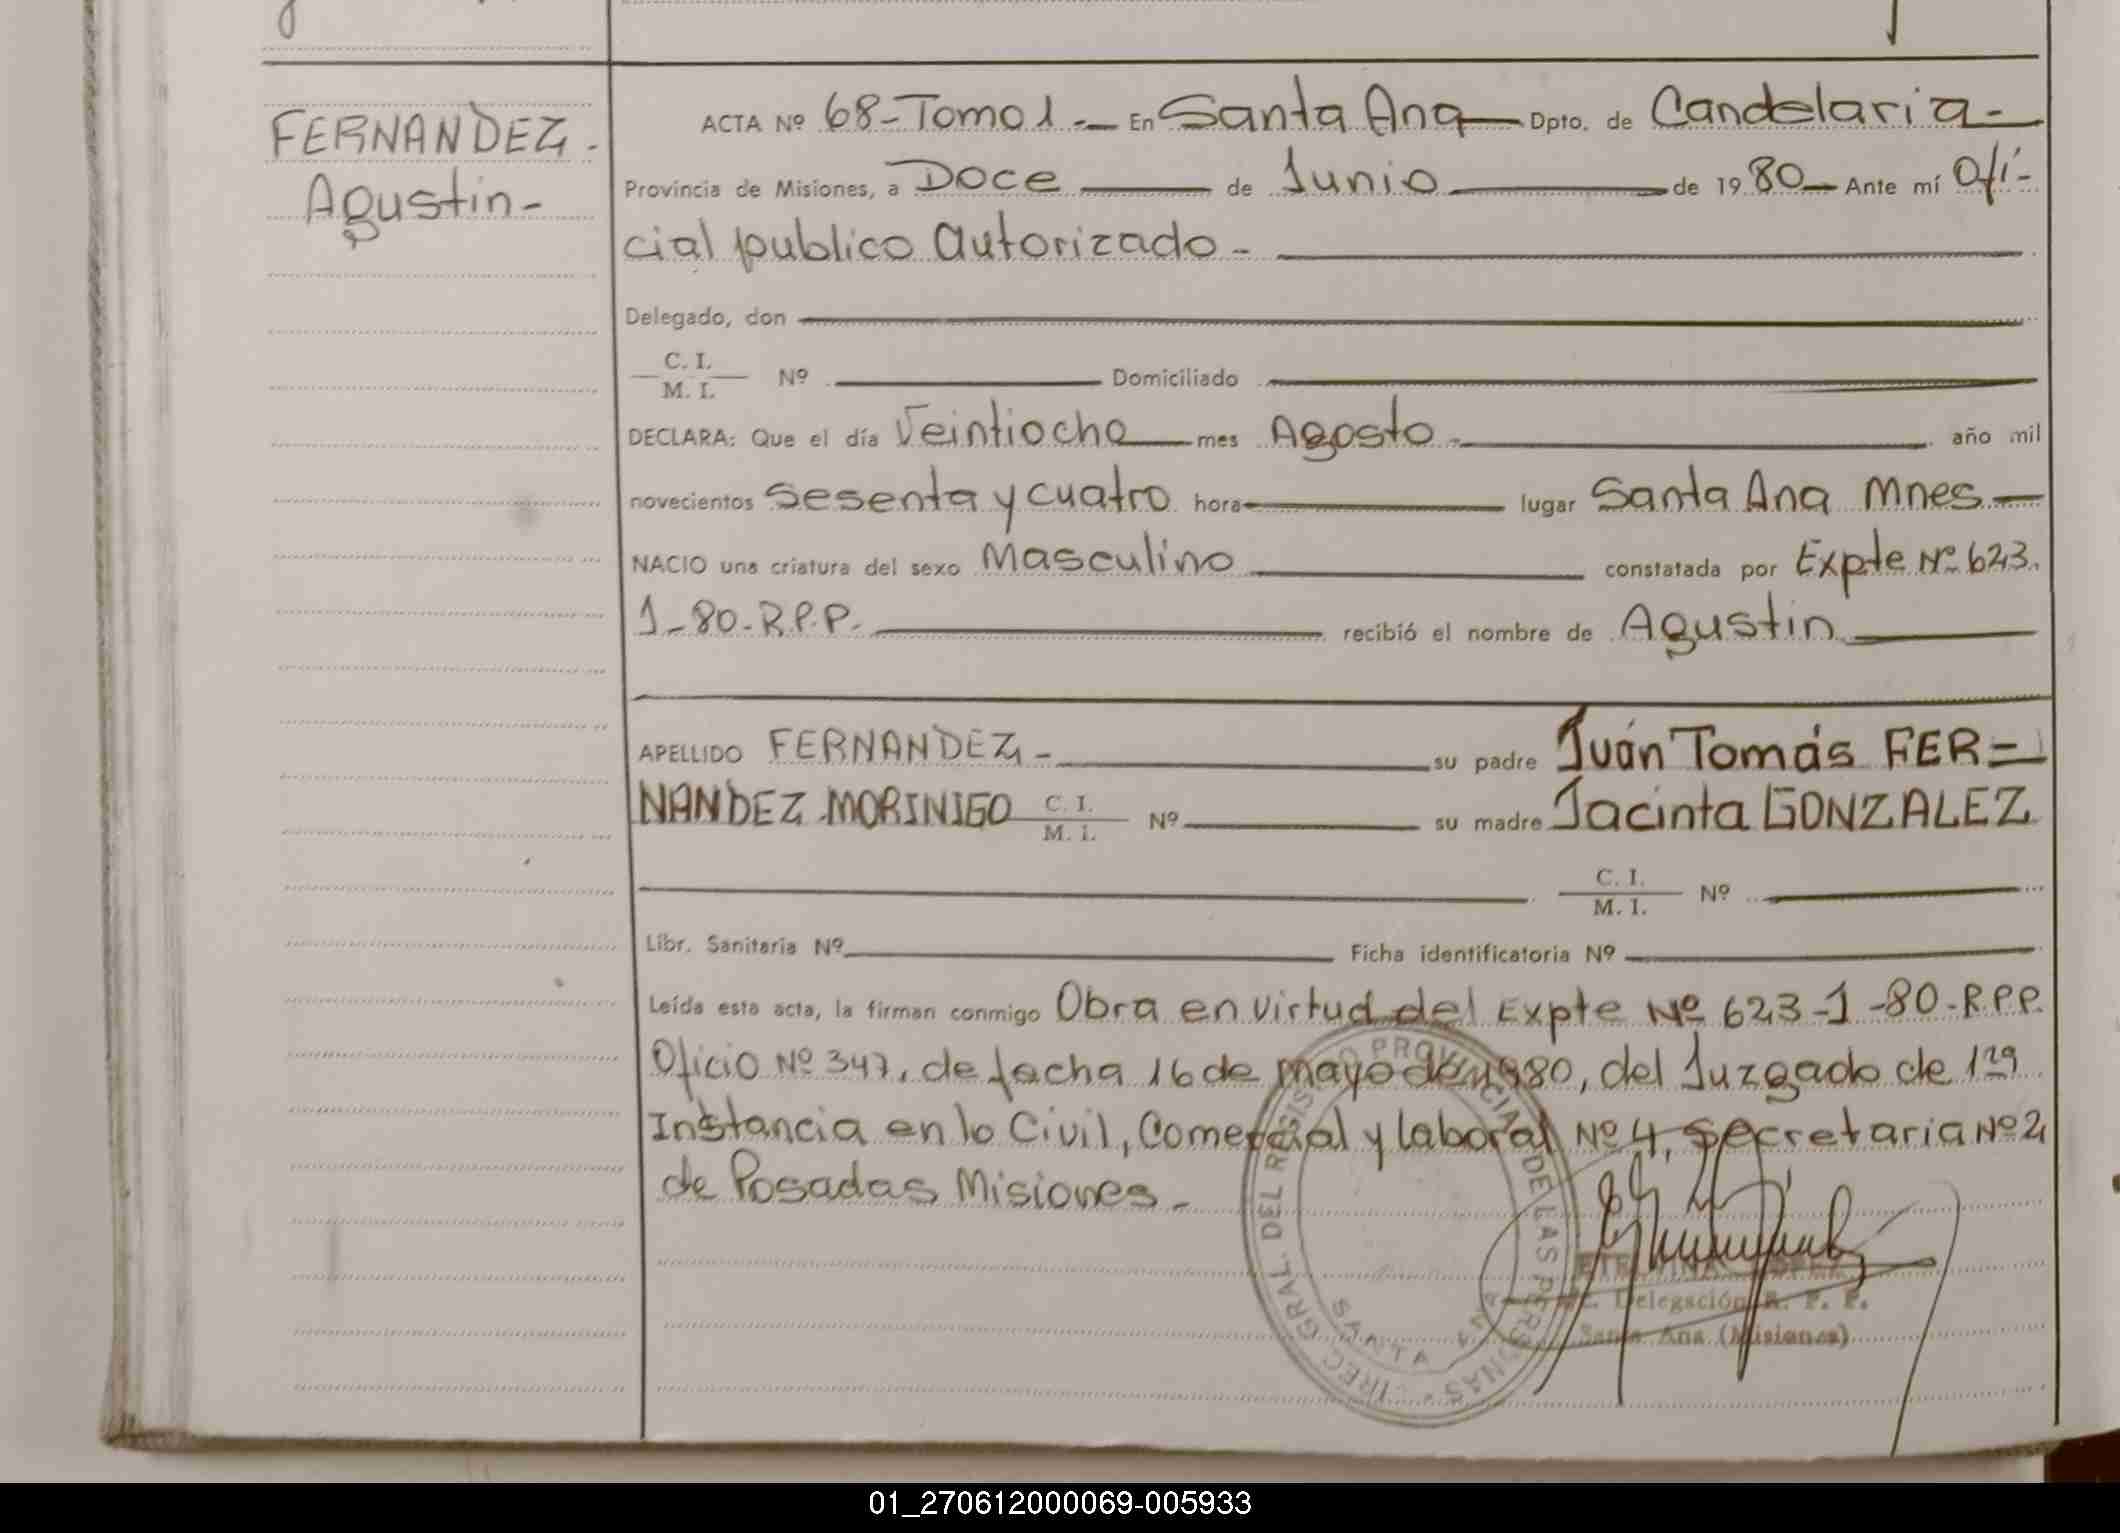 FERNANDEZ.
Agustin-
ACTA Nº 68-Tomo1.- En Santa Ana Dpto. de Candelaria-
Provincia de Misiones, a Doce de Junio de 1980 Ante mí Ofi-
cial publico autorizado-
Delegado, don
C. I.
M. I.
Nº Domiciliado
DECLARA: Que el día Veintiocho mes Agosto- año mil
novecientos Sesenta y cuatro hora lugar Santa Ana Mnes-
NACIO una criatura del sexo Masculino constatada por Expte Nº 623.
1-80-R.P.P. recibió el nombre de Agustin
APELLIDO FERNANDEZ- su padre Juán Tomás FER=
NANDEZ MORINIGO C. I. M. I. Nº su madre Jacinta GONZALEZ
C. I.
M. I.
Nº
Libr. Sanitaria Nº Ficha identificatoria Nº
Leída esta acta, la firman conmigo Obra en virtud del Expte Nº 623-1-80-R.P.P.
Oficio Nº 347, de fecha 16 de mayo de 1980, del Juzgado de 1ra
Instancia en lo Civil, Comercial y laboral Nº 4, Secretaria Nº 2
de Posadas Misiones-
DIREC. GRAL. DEL REGISTRO PROVINCIAL DE LAS PERSONAS
SANTA ANA
Delegación R. P. P.
Santa Ana (Misiones)
01_270612000069-005933